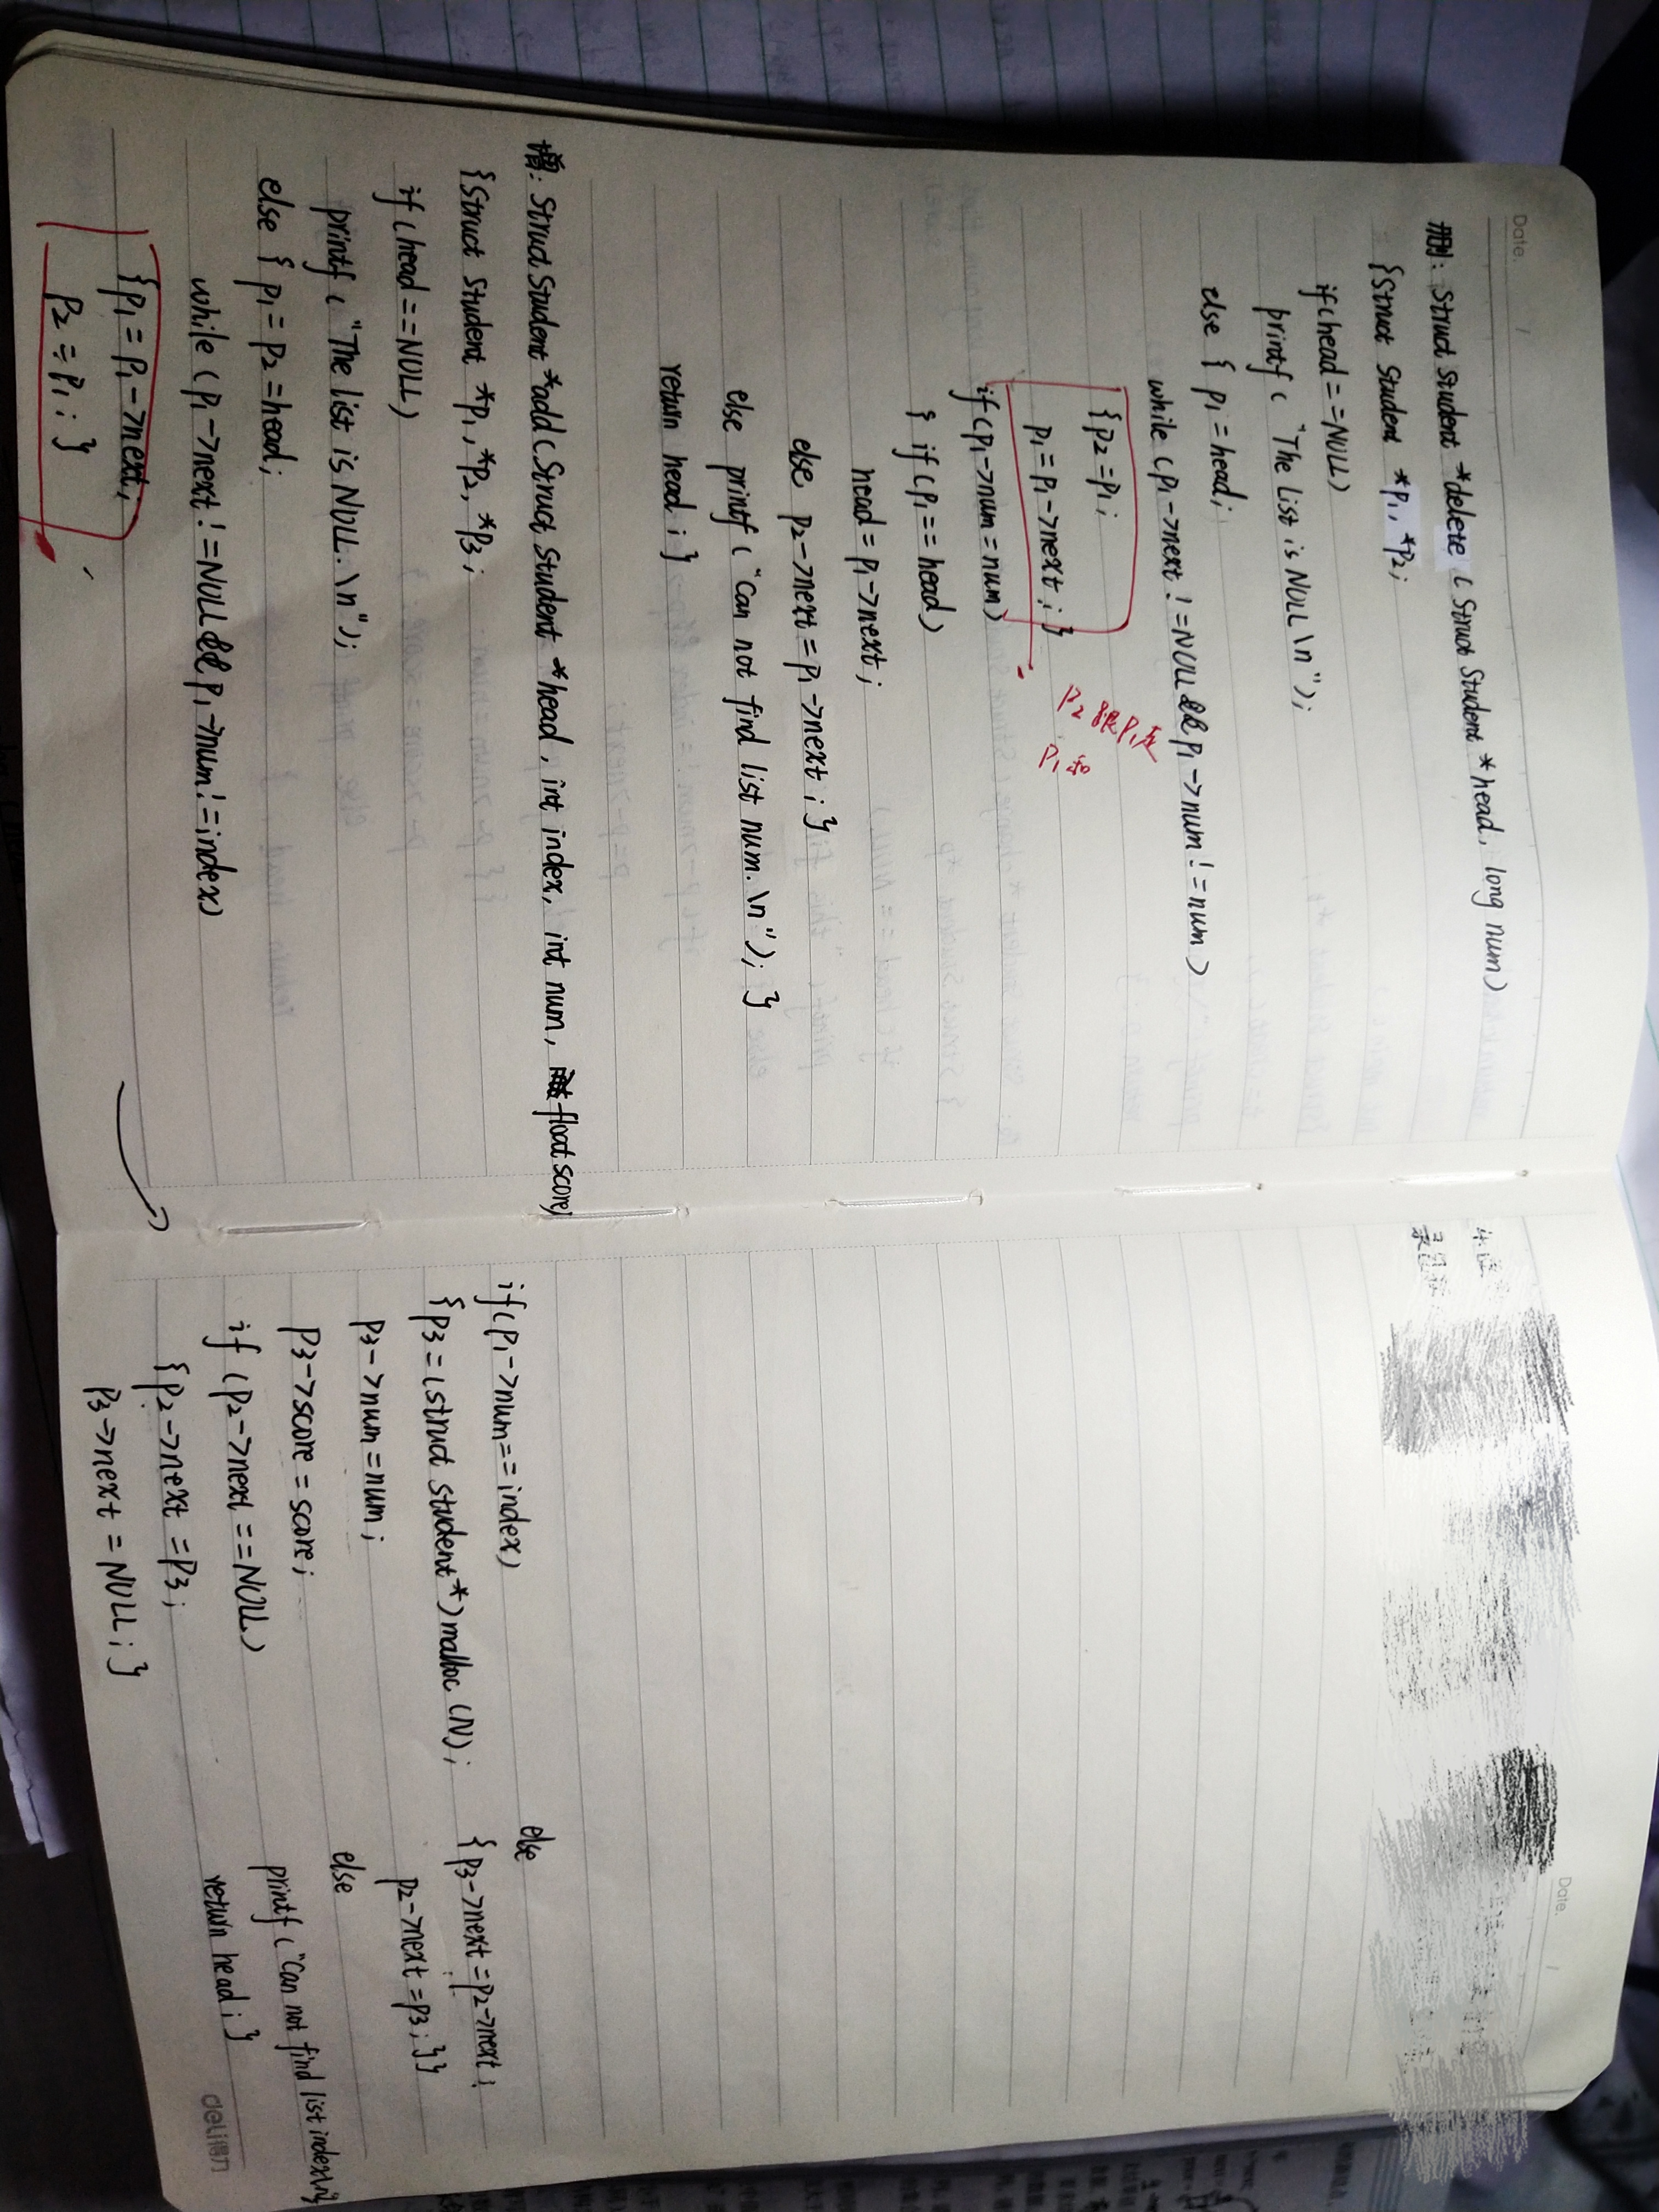 Date.
删: Struct Student *delete (Struct Student *head, long num)
{Struct Student *p1, *p2;
if(head==NULL)
printf ("The list is NULL \n");
else { p1=head;
while (p1->next!=NULL&&p1->num!=num)
{p2=p1;
p1=p1->next;}
p2跟p1后
p1和
if(p1->num=num)
{ if(p1==head)
head=p1->next;
else p2->next=p1->next;}
else printf ("Can not find list num.\n"); }
return head;}
增: Struct Student *add(Struct Student *head, int index, int num, float score)
{Struct Student *p1, *p2, *p3;
if(head==NULL)
printf ("The list is NULL.\n");
else { p1=p2=head;
while (p1->next!=NULL&&p1->num!=index)
{p1=p1->next;
p2=p1;}
Date.
if(p1->num==index)
{p3=(struct student*)malloc(N);
p3->num=num;
p3->score=score;
if (p2->next==NULL)
{p2->next=p3;
p3->next=NULL;}
else
{p3->next=p2->next;
p2->next=p3;}}
else
printf ("Can not find list index\n")
return head;}
deli